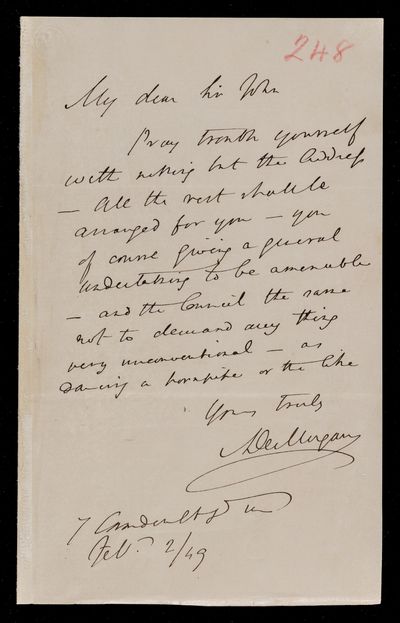 248
My dear Sir John
Pray trouble yourself
with nothing but the Address
— All the rest shall be
arranged for you — you
of course giving a general
undertaking to be amenable
— and the Council the same
not to demand any thing
very unconventional — as
dancing a hornpipe or the like
Yours truly
ADeMorgan
7 Camden St
Feb. 2/49